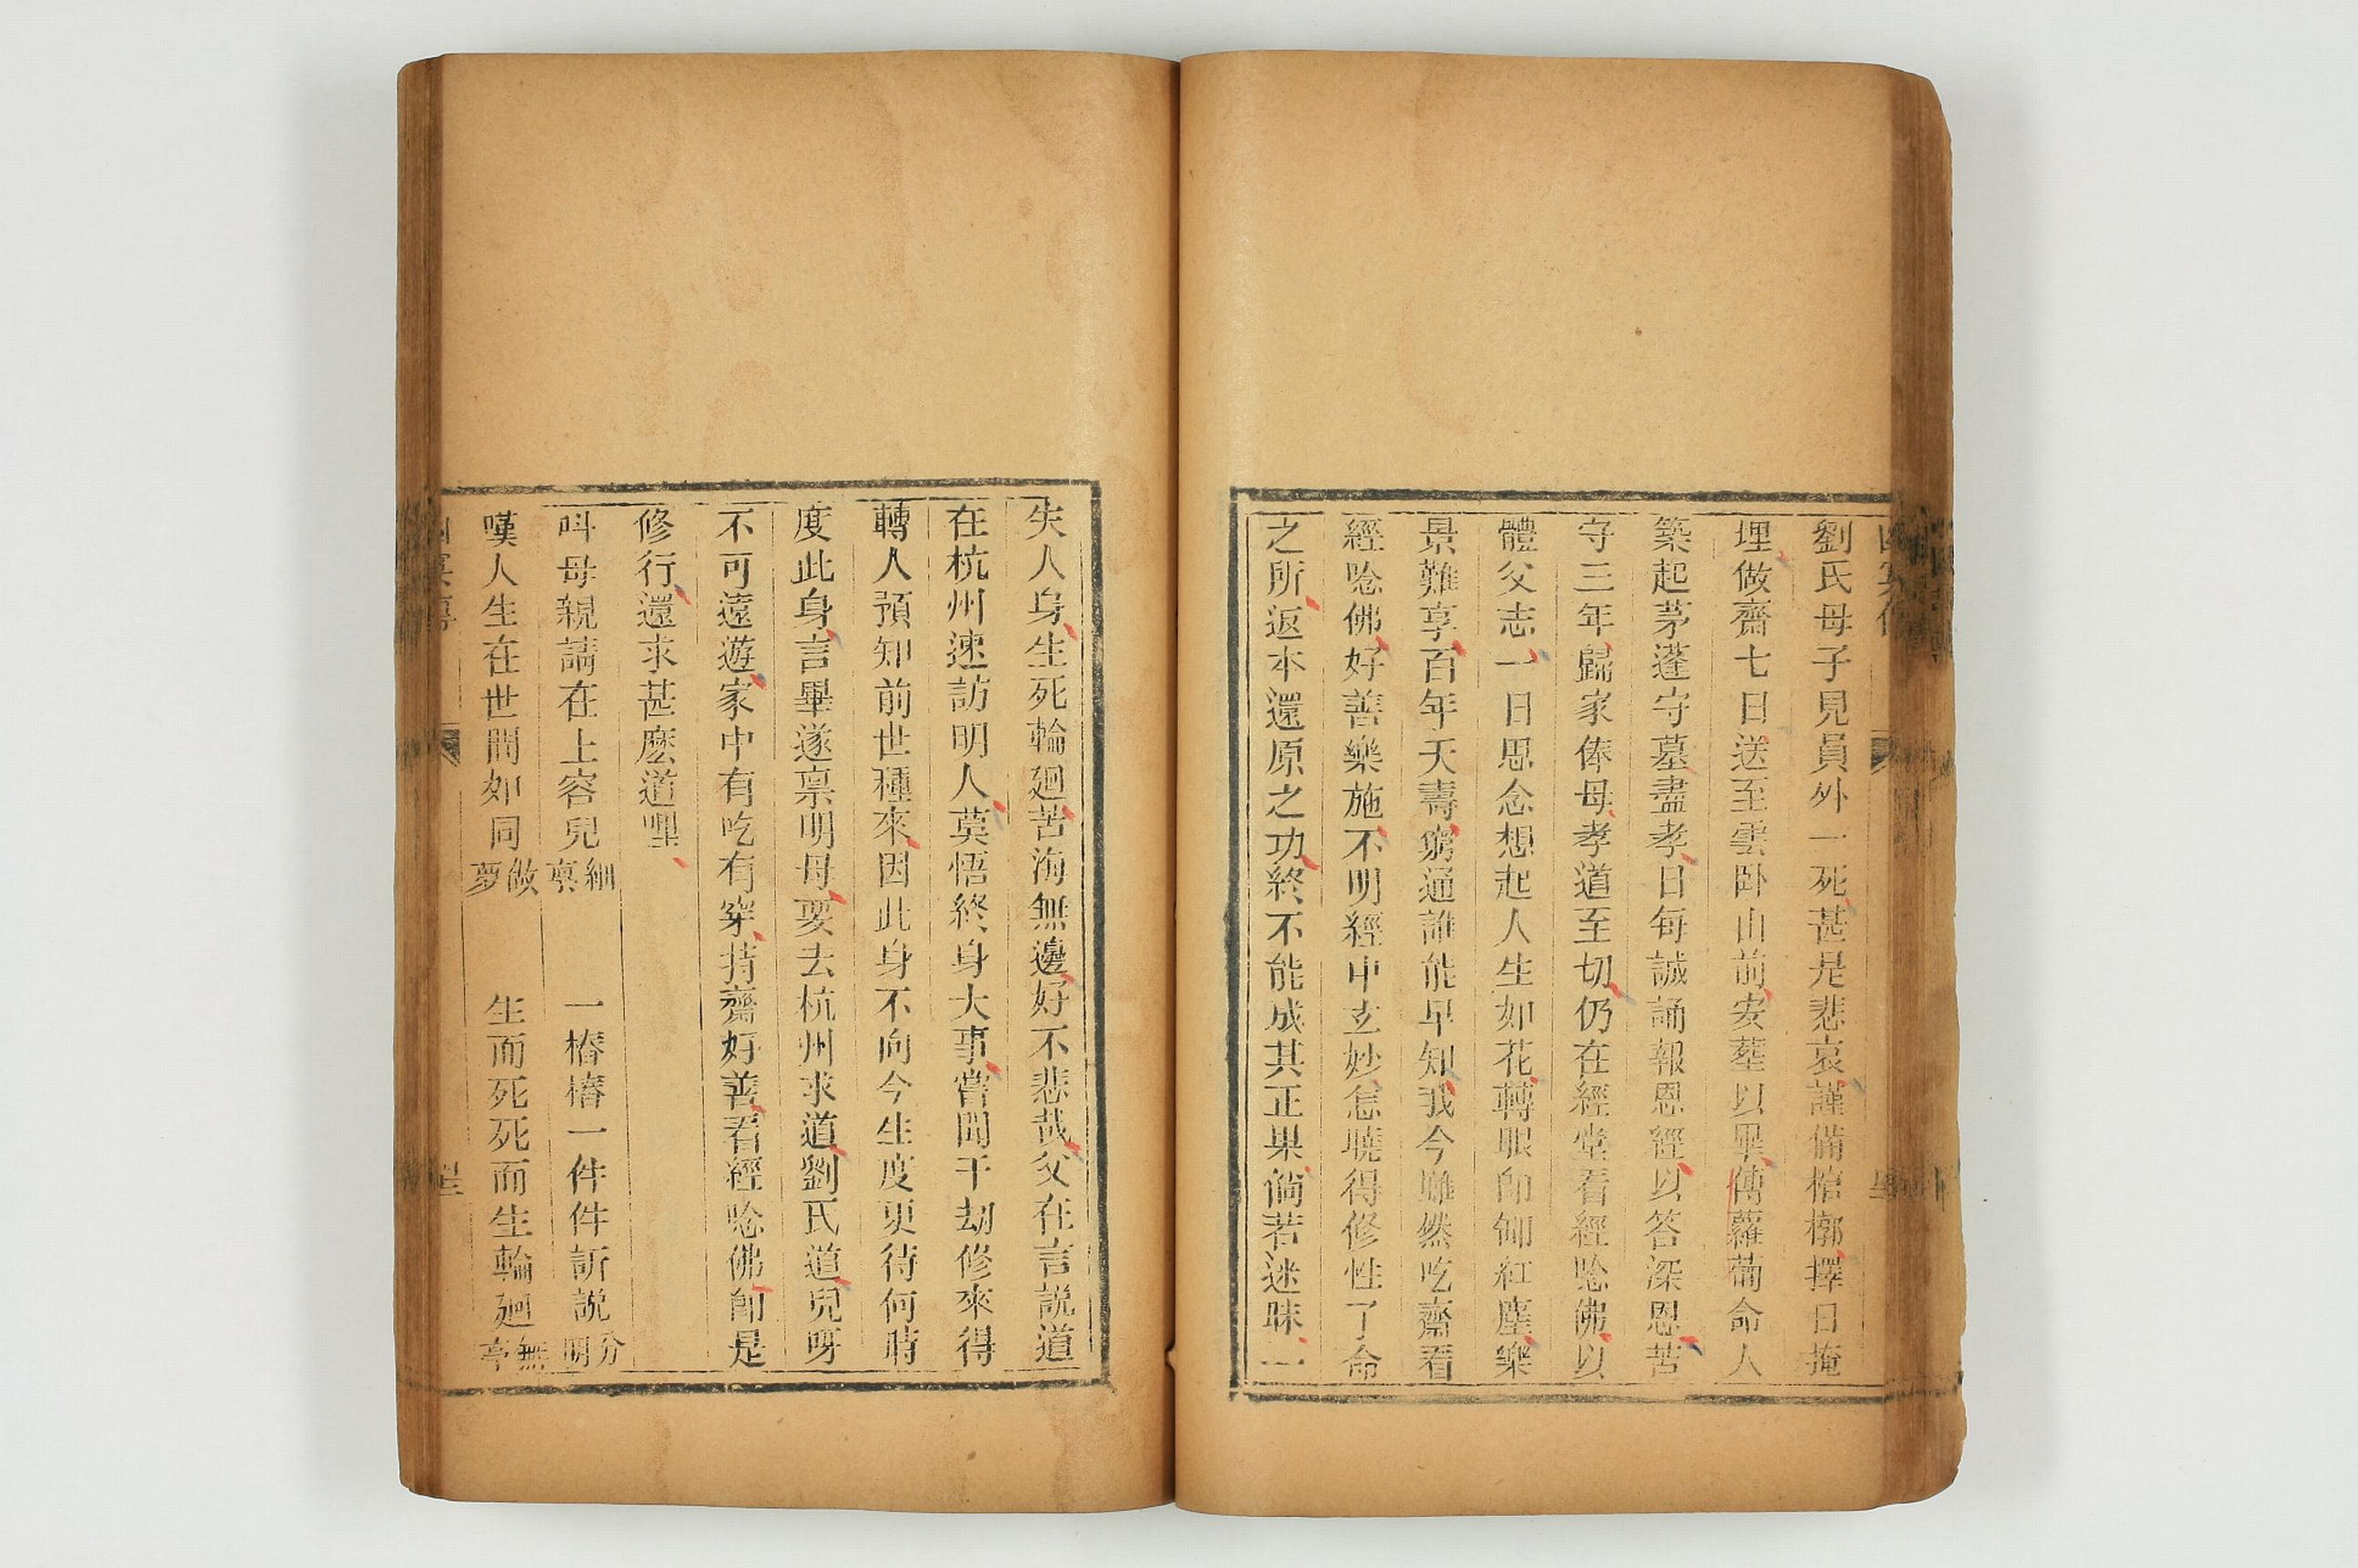 劉氏母子見員外一死甚是悲哀謹備棺槨擇日掩
埋做齋七日送至雲卧山前安塟以畢傅蘿蔔命人
築起茅蓬守墓盡孝日每誠誦報恩經以答深恩苦
守三年歸家俸母孝道至切仍在經堂看經唸佛以
體父志一日思念想起人生如花轉眼卽卸紅塵樂
景難享百年夭壽窮通誰能早知我今雖然吃齋看
經唸佛好善樂施不明經中玄妙怎曉得修性了命
之所返本還原之功終不能成其正果倘若迷昧一
失人身生死輪廻苦海無邊好不悲哉父在言説道
在杭州速訪明人莫悟終身大事嘗聞千劫修來得
轉人預知前世種來因此身不向今生度更待何時
度此身言畢遂禀明母要去杭州求道劉氏道兒呀
不可遠遊家中有吃有穿持齋好善看經唸佛卽是
修行還求甚麽道哩
呌母親請在上容兒細禀 一樁樁一件件訴説分明
嘆人生在世間如同做夢 生而死死而生輪廻無亭